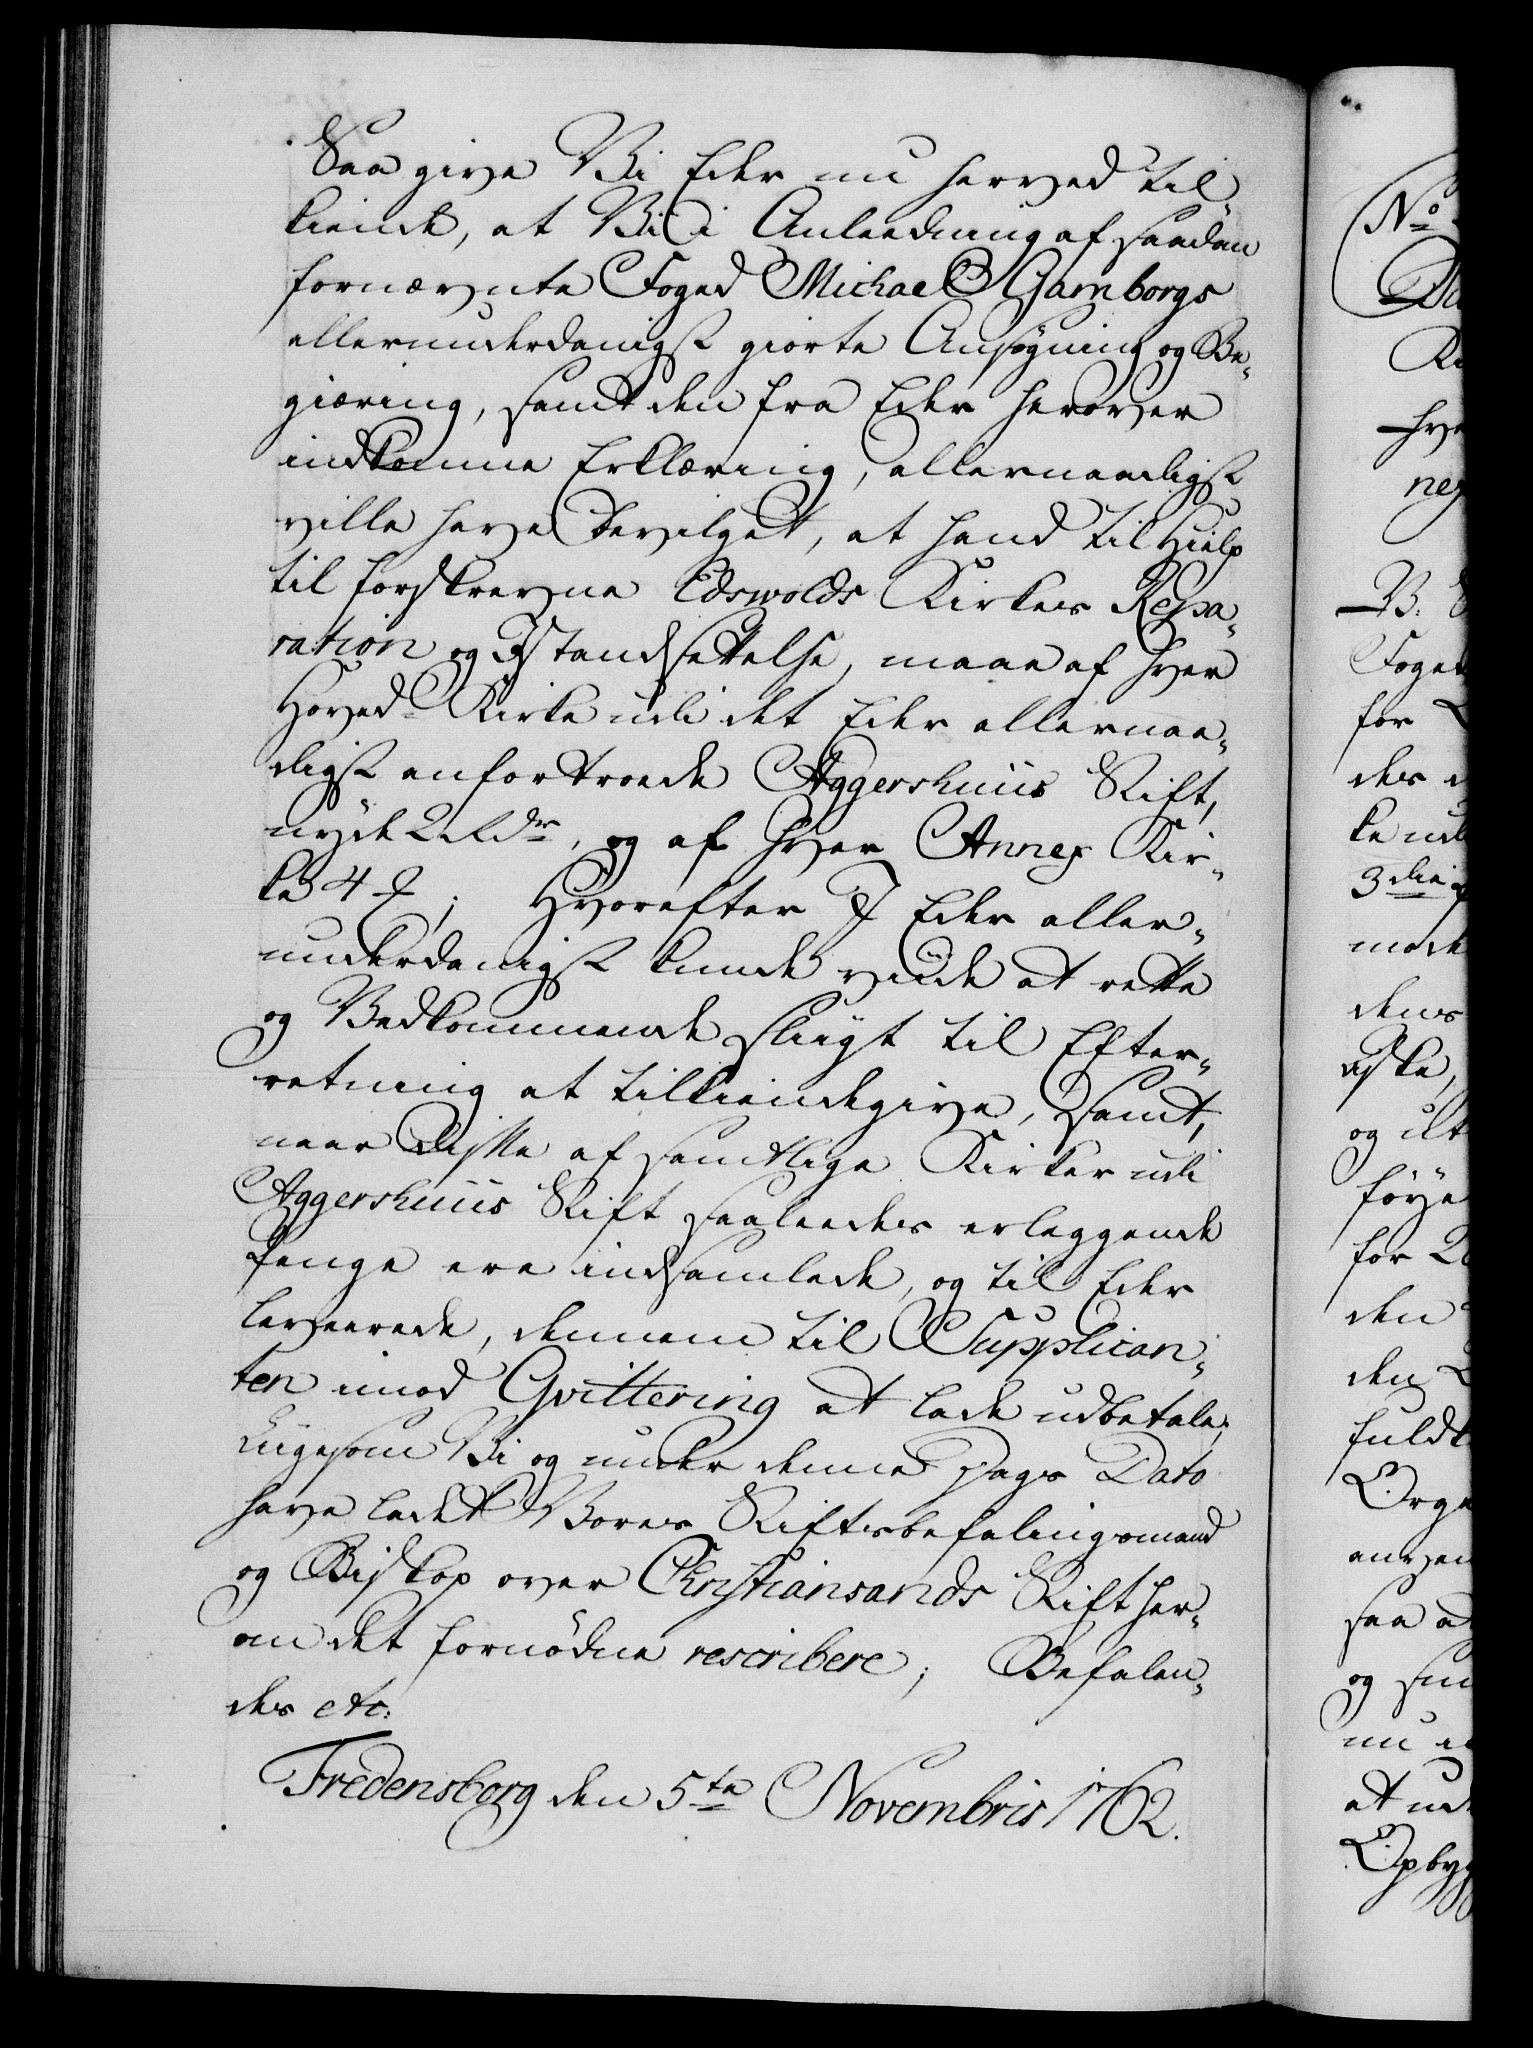 Saa give Vi Eder nu herved til
kiende, at Vi i Anleedning af saadan
fornævnte Foged Michael Gamborgs
allerunderdanigst giorte Ansøgning og Be-
giæring, samt den fra Eder herover
indkomne Erklæring, allernaadigst
ville have bevilget, at hand til Hielp
til forskrevne Edswolds Kirkes Repa-
ration og Istandsættelse, maae af hver
Hoved-Kirke udi det Eder allernaa-
digst anfortroede Aggershuus Stift,
nyde 2 Rdr, og af hver Annex Kir-
ke 4 ; Hvorefter I Eder aller-
underdanigst kunde viide at rette
og Vedkommende sligt til Efter-
retning at tilkiendegive, samt,
naar disse af samtlige Kirker udi
Aggershuus Stift saaleedes erleggende
Penge ere indsamlede, og til Eder
leverede, dennem til Supplican-
ten imod Qvittering at lade udbetale;
Ligesom Vi og under denne Dags Dato
have ladet Vores Stiftsbefalingsmand
og Biskop over Christiansands Stift her-
om det fornødne rescribere; Befalen-
des etc:
Fredensborg den 5te Novembris 1762.
No
for
3die
mode
dens
og
for
den
den
fuldk
saa
og
nu
at